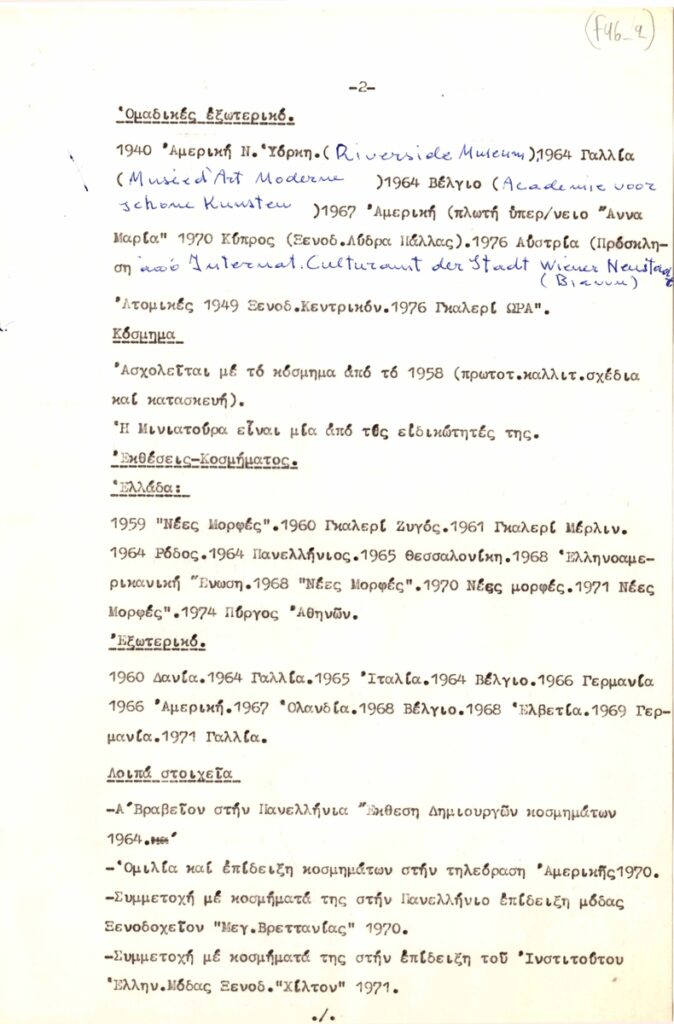 (F46_2)
-2-
Ὁμαδικές ἐξωτερικό.
1940 Ἀμερική Ν.Ὑόρκη.(Riverside Museum),1964 Γαλλία
(Musée d'Art Moderne )1964 Βέλγιο (Academie voor
schone Kunsten )1967 Ἀμερική (πλωτή ὑπερ/νειο "Ἄννα
Μαρία" 1970 Κύπρος (Ξενοδ.Λύδρα Πάλλας).1976 Αὐστρία (Πρόσκλη-
ση ἀπό Internat.Culturamt der Stadt Wiener Neustadt
(Βιέννη)
Ἀτομικές 1949 Ξενοδ.Κεντρικόν.1976 Γκαλερί ΩΡΑ".
Κόσμημα
Ἀσχολεῖται μέ τό κόσμημα ἀπό τό 1958 (πρωτοτ.καλλιτ.σχέδια
καί κατασκευή).
Ἡ Μινιατούρα εἶναι μία ἀπό τίς εἰδικώτητές της.
Ἐκθέσεις-Κοσμήματος.
Ἑλλάδα:
1959 "Νέες Μορφές".1960 Γκαλερί Ζυγός.1961 Γκαλερί Μέρλιν.
1964 Ρόδος.1964 Πανελλήνιος.1965 Θεσσαλονίκη.1968 Ἑλληνοαμε-
ρικανική Ἕνωση.1968 "Νέες Μορφές".1970 Νέες μορφές.1971 Νέες
Μορφές".1974 Πύργος Ἀθηνῶν.
Ἐξωτερικό.
1960 Δανία.1964 Γαλλία.1965 Ἰταλία.1964 Βέλγιο.1966 Γερμανία
1966 Ἀμερική.1967 Ὁλανδία.1968 Βέλγιο.1968 Ἑλβετία.1969 Γερ-
μανία.1971 Γαλλία.
Λοιπά στοιχεῖα
-Α΄Βραβεῖον στήν Πανελλήνια Ἔκθεση Δημιουργῶν κοσμημάτων
1964.
-Ὁμιλία καί ἐπίδειξη κοσμημάτων στήν τηλεόραση Ἀμερικῆς1970.
-Συμμετοχή μέ κοσμήματά της στήν Πανελλήνιο ἐπίδειξη μόδας
Ξενοδοχεῖον "Μεγ.Βρεττανίας" 1970.
-Συμμετοχή μέ κοσμήματά της στήν ἐπίδειξη τοῦ Ἰνστιτούτου
Ἑλλην.Μόδας Ξενοδ."Χίλτον" 1971.
./.